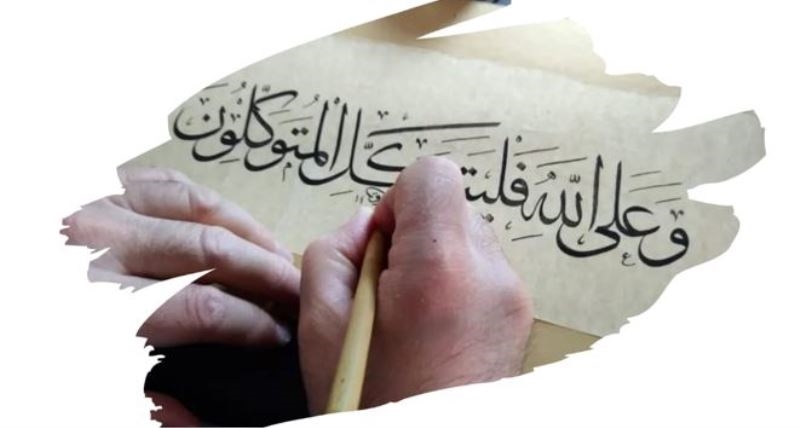 وَعَلَى اللّٰهِ فَلْيَتَوَكَّلِ الْمُتَوَكِّلُونَ